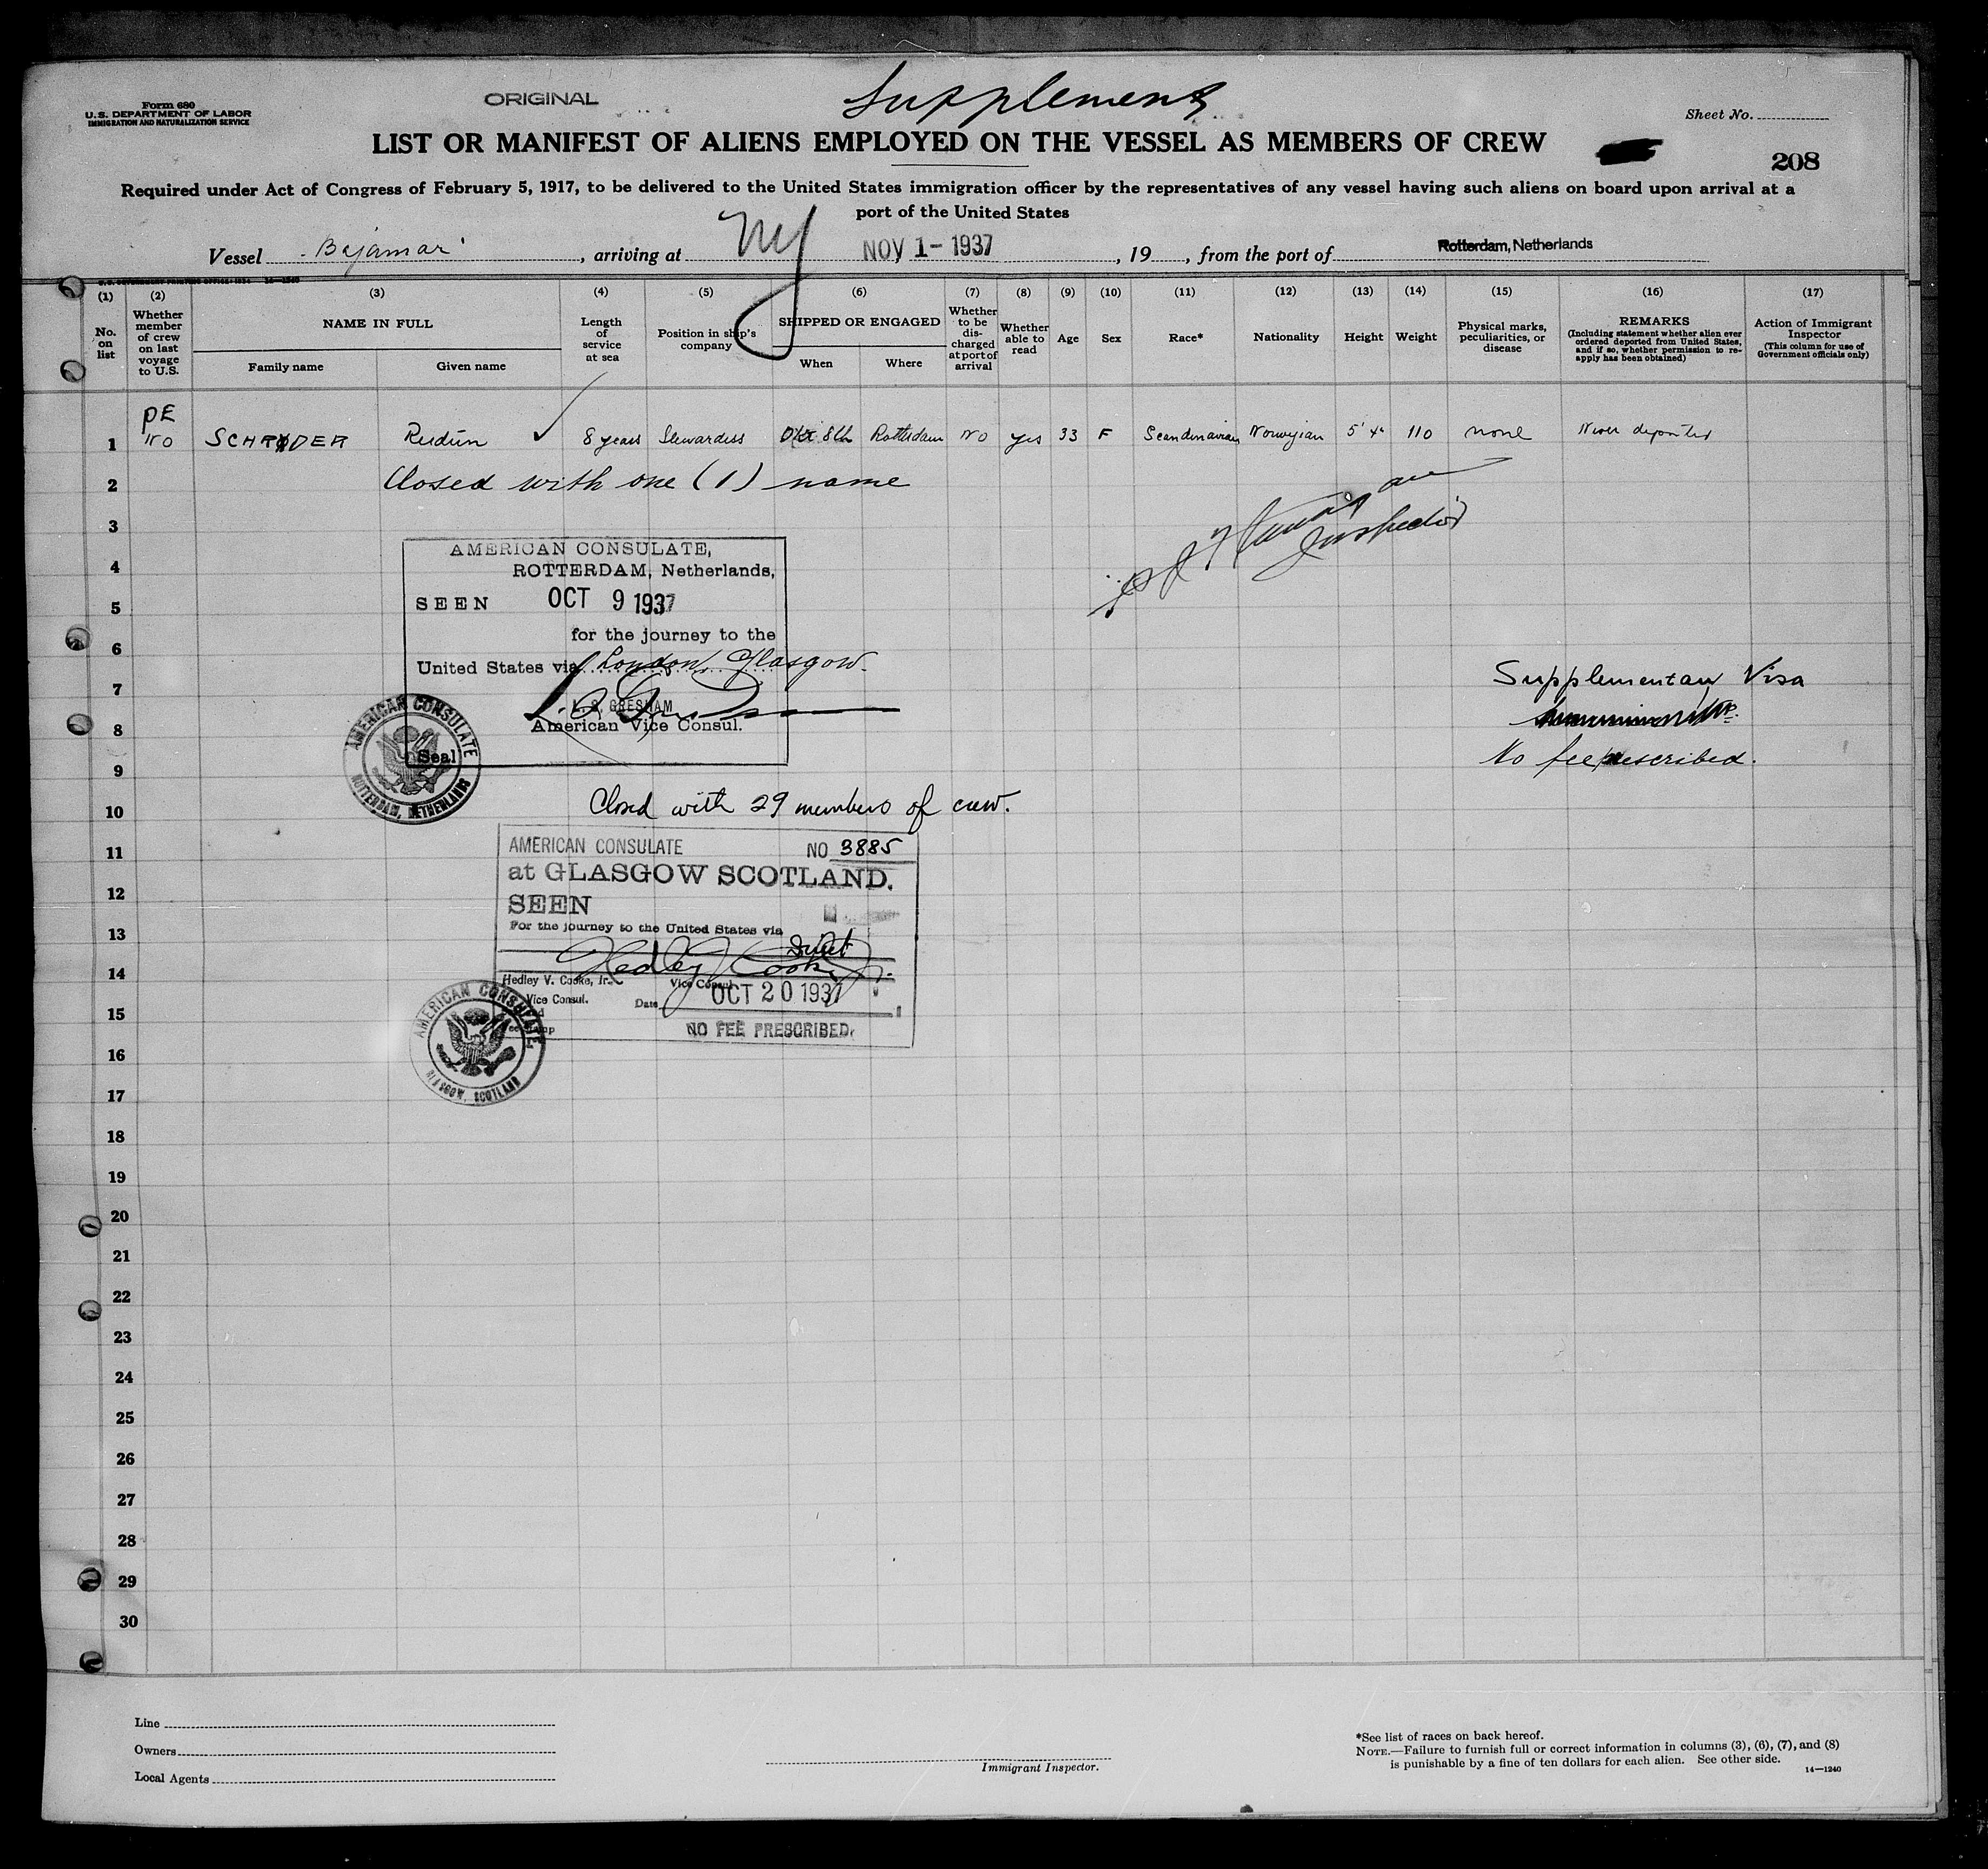 Form 680
U.S. DEPARTMENT OF LABOR
IMMIGRATION AND NATURALIZATION SERVICE
ORIGINAL
Supplement
Sheet No.
LIST OR MANIFEST OF ALIENS EMPLOYED ON THE VESSEL AS MEMBERS OF CREW
208
Required under Act of Congress of February 5, 1917, to be delivered to the United States immigration officer by the representatives of any vessel having such aliens on board upon arrival at a
port of the United States
Vessel Bajamar, arriving at NY NOV 1 - 1937, 19, from the port of Rotterdam, Netherlands
(1) (2) (3) (4) (5) (6) (7) (8) (9) (10) (11) (12) (13) (14) (15) (16) (17)
No. on list
Whether member of crew on last voyage to U.S.
NAME IN FULL
Family name
Given name
Length of service at sea
Position in ship's company
SHIPPED OR ENGAGED
When
Where
Whether to be discharged at port of arrival
Whether able to read
Age
Sex
Race*
Nationality
Height
Weight
Physical marks, peculiarities, or disease
REMARKS
(Including statement whether alien ever ordered deported from United States, and if so, whether permission to reapply has been obtained)
Action of Immigrant Inspector
(This column for use of Government officials only)
PE
1 NO SCHRØDER 8 years Stewardess 8th Rotterdam NO yes 33 F Scandinavian Norwegian 5' 4" 110 none Never deported
2 Closed with one (1) name
3
Inspector
4
5
6
7
8
9
10
11
12
13
14
15
16
17
18
19
20
21
22
23
24
25
26
27
28
29
30
AMERICAN CONSULATE,
ROTTERDAM, Netherlands,
SEEN OCT 9 1937
for the journey to the
United States via London, Glasgow.
L. S. GRESHAM
American Vice Consul.
Seal
AMERICAN CONSULATE
ROTTERDAM, NETHERLANDS
Supplementary Visa
No fee prescribed.
Closed with 29 members of crew.
AMERICAN CONSULATE NO 3885
at GLASGOW SCOTLAND.
SEEN
For the journey to the United States via
Direct
Hedley V. Cooke, Jr.
Hedley V. Cooke, Jr. Vice Consul
Vice Consul. Date OCT 20 1937
NO FEE PRESCRIBED.
AMERICAN CONSULATE
GLASGOW, SCOTLAND
Line
Owners
Local Agents
Immigrant Inspector.
*See list of races on back hereof.
NOTE.—Failure to furnish full or correct information in columns (3), (6), (7), and (8)
is punishable by a fine of ten dollars for each alien. See other side.
14—1240